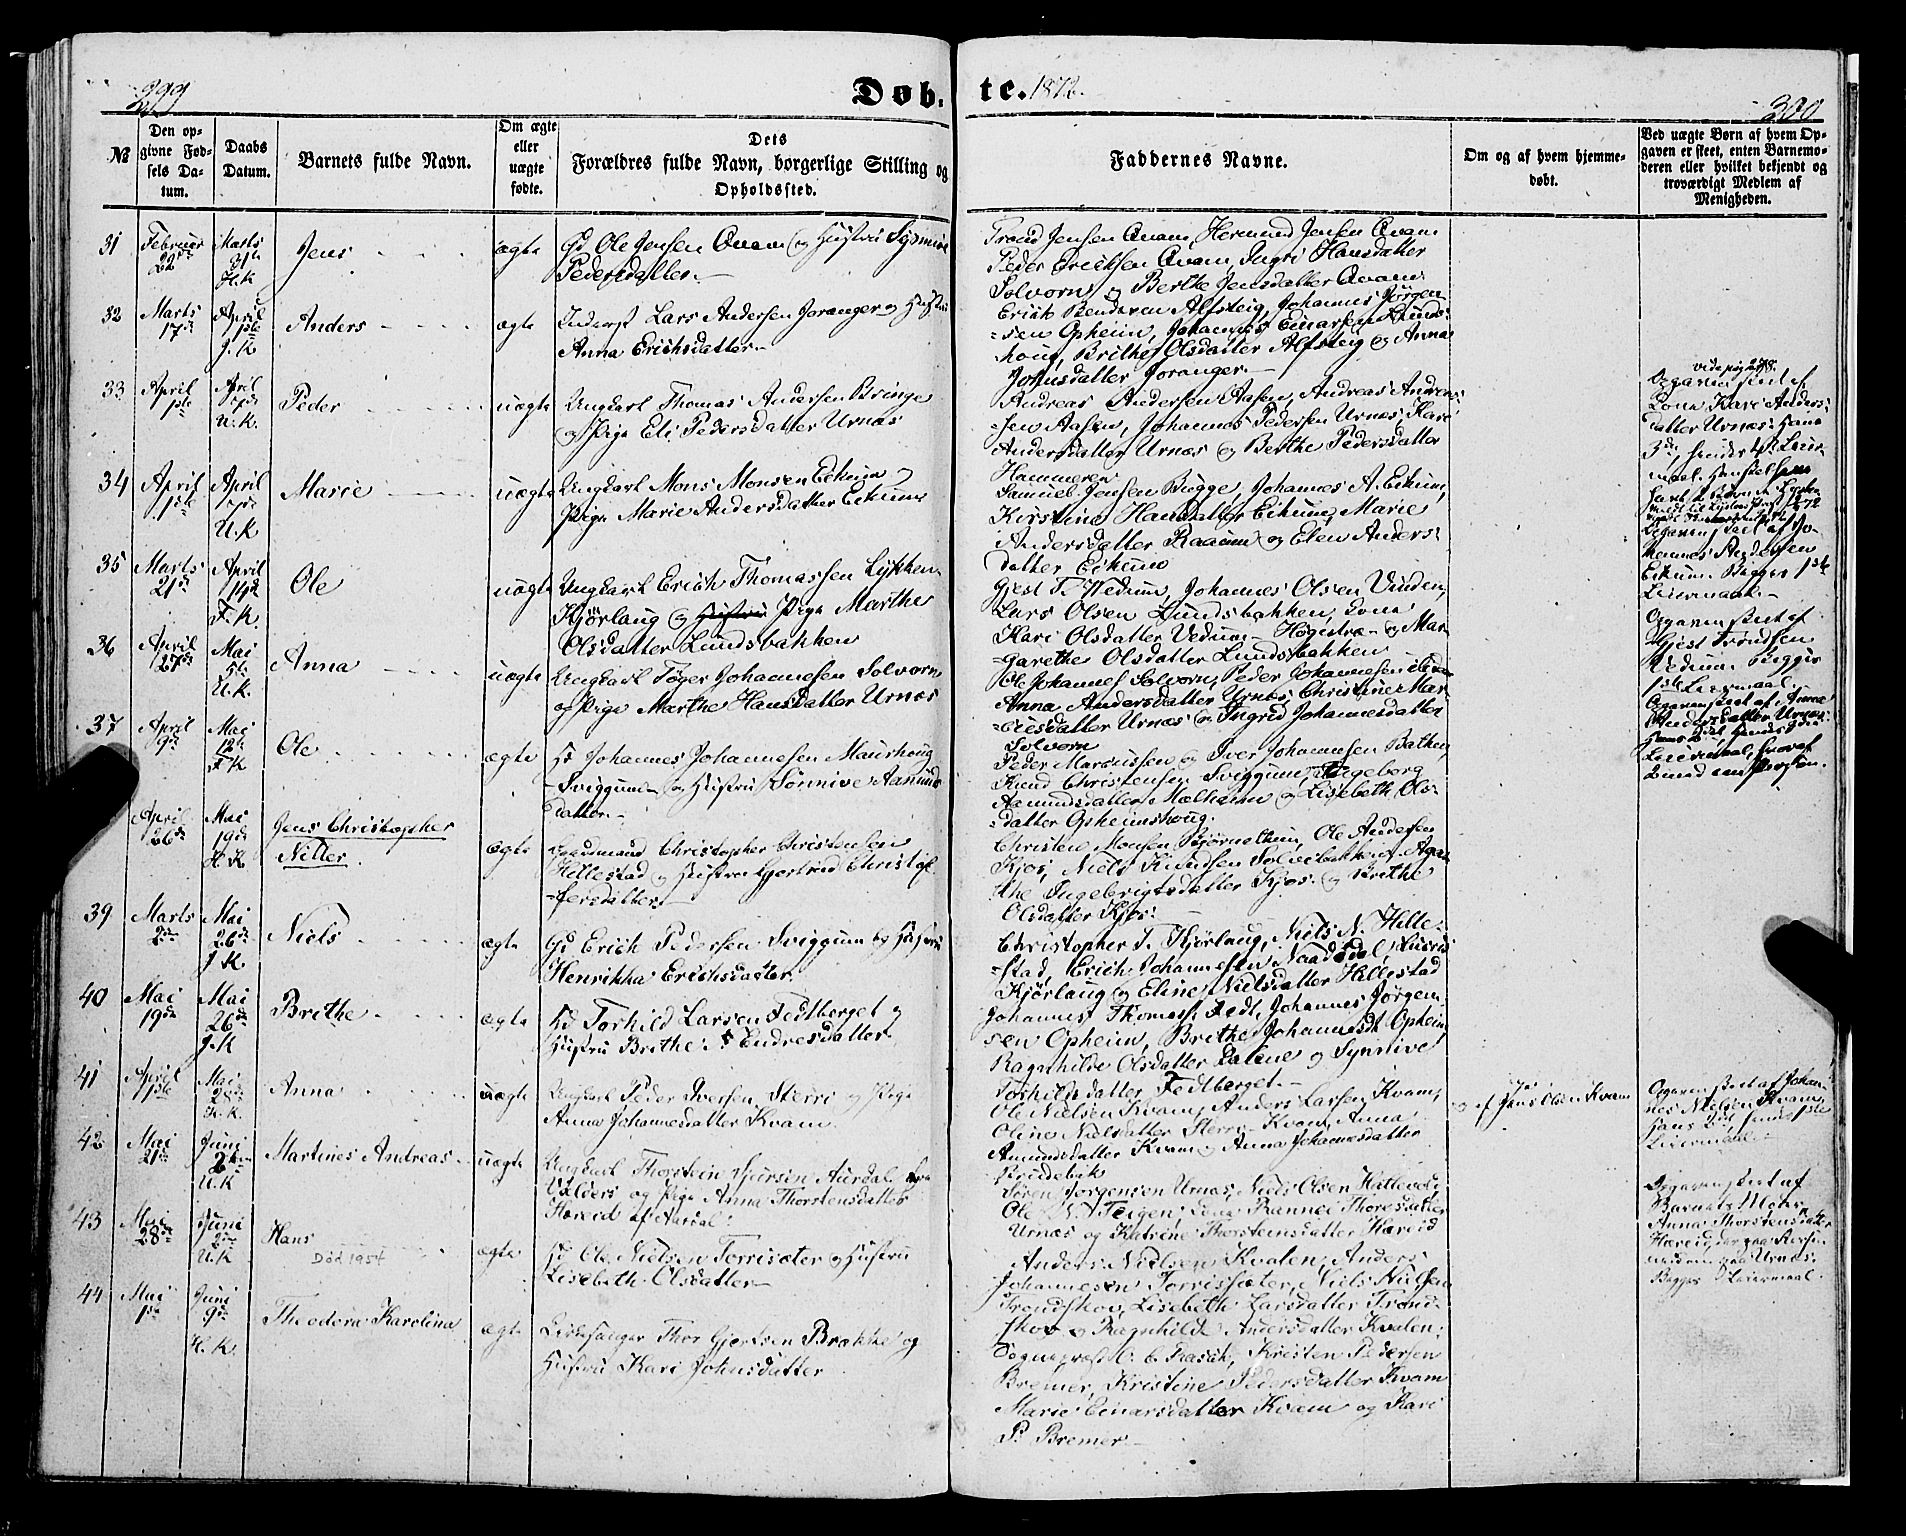 299
Døb-
te. 1872.
300
№
Den opgivne Fødsels Datum.
Daabs Datum.
Barnets fulde Navn.
Om ægte eller uægte fødte.
Dets Forældres fulde Navn, borgerlige Stilling og Opholdssted.
Faddernes Navne.
Om og af hvem hjemmedøbt.
Ved uægte Børn af hvem Opgaven er skeet, enten Barnemoderen eller hvilket bekjendt og troværdigt Medlem af Menigheden.
31
Februar 22de
Marts 31te
H.K
Jens
ægte
Gd Ole Jensen Qvam og Hustru Synnive
Pedersdatter.
Trond Jensen Qvam, Hermund Jensen Qvam
Peder Ericksen Qvam, Ingri Hansdatter
Solvorn og Berthe Jensdatter Qvam
32
Marts 17de
April 1ste
J.K
Anders
ægte
Inderst Lars Andersen Joranger og Hustru
Anna Erichsdatter
Erick Bendixen Alsteig, Johannes Jørgen-
sen Opheim, Johannes Einarsen
Brithe Olsdatter Alsteig og Anna
Johnsdatter Joranger.
33
April 1ste
April 7de
U.K.
Peder
uægte
Ungkarl Thomas Andersen Bringe
og Pige Eli Pedersdatter Urnæs
Andreas Andersen Aasen, Andreas Andrea-
sen Aasen, Johannes Pedersen Urnæs, Kari
Andersdatter Urnæs og Berthe Pedersdatter
Hammeren
Opgaven skeet af
Kona Kari Anders-
datter Urnæs. Hans
3de, hendes 1ste Leier-
maal.
34
April 1ste
April 7de
U.K
Marie
uægte
Ungkarl Mons Monsen Eikum og
Pige Marie Andersdatter Eikum
Samuel Jensen Bugge, Johannes A. Eikum,
Kirstine Hansdatter Eikum, Marie
Andersdatter Raaum og Elen Anders-
datter Eikum
Opgaven skeet af Jo-
hannes Andersen
Eikum. Begges 1ste
Leiermaal.
35
Marts 21de
April 14de
F.K.
Ole
uægte
Ungkarl Erich Thomassen Lykken
Kjørlaug og Hustru Pige Marthe
Olsdatter Lundsbakken
Gjest T. Vedum, Johannes Olsen Vinden,
Lars Olsen Lundsbakken, Kona
Kari Olsdatter Vedum - Høgestræ - og Mar-
garethe Olsdatter Lundsbakken
Opgaven skeet af
Gjest Trondsen
Vedum. Begges
1ste Leiermaal.
36
April 27de
Mai 5te
U.K.
Anna
uægte
Ungkarl Tøger Johannesen Solvorn
og Pige Marthe Hansdatter Urnæs
Ole Johannes Solvorn, Peder Johannesen
Anna Andersdatter Urnæs, Christine Mar-
cusdatter Urnæs og Ingrid Johannesdatter
Solvorn
Opgaven skeet af Anna
Andersdatter Urnæs.
Leiermaal,
37
April 9de
Mai 12te
F.K
Ole
ægte
Hd Johannes Johannesen Maurhoug
Sviggum og Hustru Sønnive Aamunds-
datter.
Peder Marcussen og Iver Johannesen Bathen,
Knud Christensen Sviggum, Ingeborg
Aamundsdatter Mælheim og Lisebeth Ols-
datter Opheimshoug.
April 26de
Mai 19de
H.K
Jens Christopher
Nitter.
ægte
Gaardmand Christopher Christensen
Hillestad og Hustru Gjertrud Christof-
fersdatter
Christen Monsen Bjørnethun, Ole Andersen
Kjos, Niels Knudsen Solvibakken, Aga-
the Ingebrigtsdatter Kjos og Brithe
Olsdatter Kjos.
39
Marts 2den
Mai 26de
J.K.
Niels
ægte
Gd Erich Pedersen Sviggum og Hustru
Henrikka Erichsdatter.
Christopher T. Kjørlaug, Niels N. Hille-
stad, Erich Johannesen Naadedal,
Kjørlaug og Eline Nielsdatter Hillestad
40
Mai 19de
Mai 26de
J.K
Brithe
ægte
Hd Torkild Larsen Fedtberget og
Hustru Brithe Endresdatter
Johannes Thomass. Fedt, Johannes Jørgen-
sen Opheim, Brithe Johannesdt Opheim
Ragnhilde Olsdatter Dalene og Synnive
Torkildsdatter Fedtberget.
41
April 1ste
Mai 28de
H.K.
Anna
uægte
Ungkarl Peder Iversen Sterri og Pige
Anna Johannesdatter Kvam
Ole Nielsen Kvam, Anders Larsen Kvam,
Oline Nielsdatter Sterri, Kvam, Anna
Amundsdatter Kvam og Anna Johannesdatter
Prudebak
Ja, af Jens Olsen Kvam
Opgaven skeet af Johan-
nes Nielsen Kvam.
Hans 2det, hendes 1ste
Leiermaal.
42
Mai 21de
Juni 2den
U.K
Martines Andreas
uægte
Ungkarl Thorstein Sjursen Aurdal fra
Valders og Pige Anna Thorstensdatter
Haveid af Aardal.
Søren Jørgensen Urnæs, Niels Olsen Hetlevold,
Ole N. Teigen, Kona Rannei Thoresdatter
Urnæs og Katrine Thorstensdatter Haveid
Opgaven skeet af
Barnets Moder
Anna Thorstensdatter
Haveid,
Urnæs.
Begges Leiermaal.
43
Mai 28de
Juni 2den
U.K
Hans
Død 1954
ægte
Hd Ole Nielsen Torrisæter og Hustru
Lisebeth Olsdatter
Anders Nielsen Kvalen, Anders
Johannesen Torrissæter, Niels Nielsen
Trondskov, Lisebeth Larsdatter Trond-
skov og Ragnhilde Andersdatter Kvalen.
44
Mai 1ste
Juni 9de
H.K.
Theodora Karolina
ægte
Kirkesanger Thor Gjertsen Brække og
Hustru Kari Johnsdatter
Sognepræst C. Rasch, Kristen Pedersen
Bremer, Kristine Pedersdatter Kvam
Marie Einarsdatter Kvam og Kari
P. Bremer